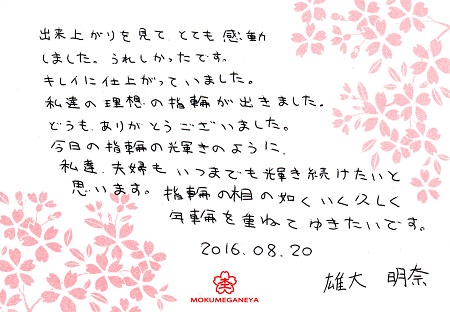 出来上がりを見て、とても感動
しました。うれしかったです。
キレイに仕上がっていました。
私達の理想の指輪が出きました。
どうも、ありがとうございました。
今日の指輪の輝きのように、
私達、夫婦もいつまでも輝き続けたいと
思います。指輪の相の如くいく久しく
年輪を重ねてゆきたいです。
2016.08.20
雄大 明奈
MOKUMEGANEYA